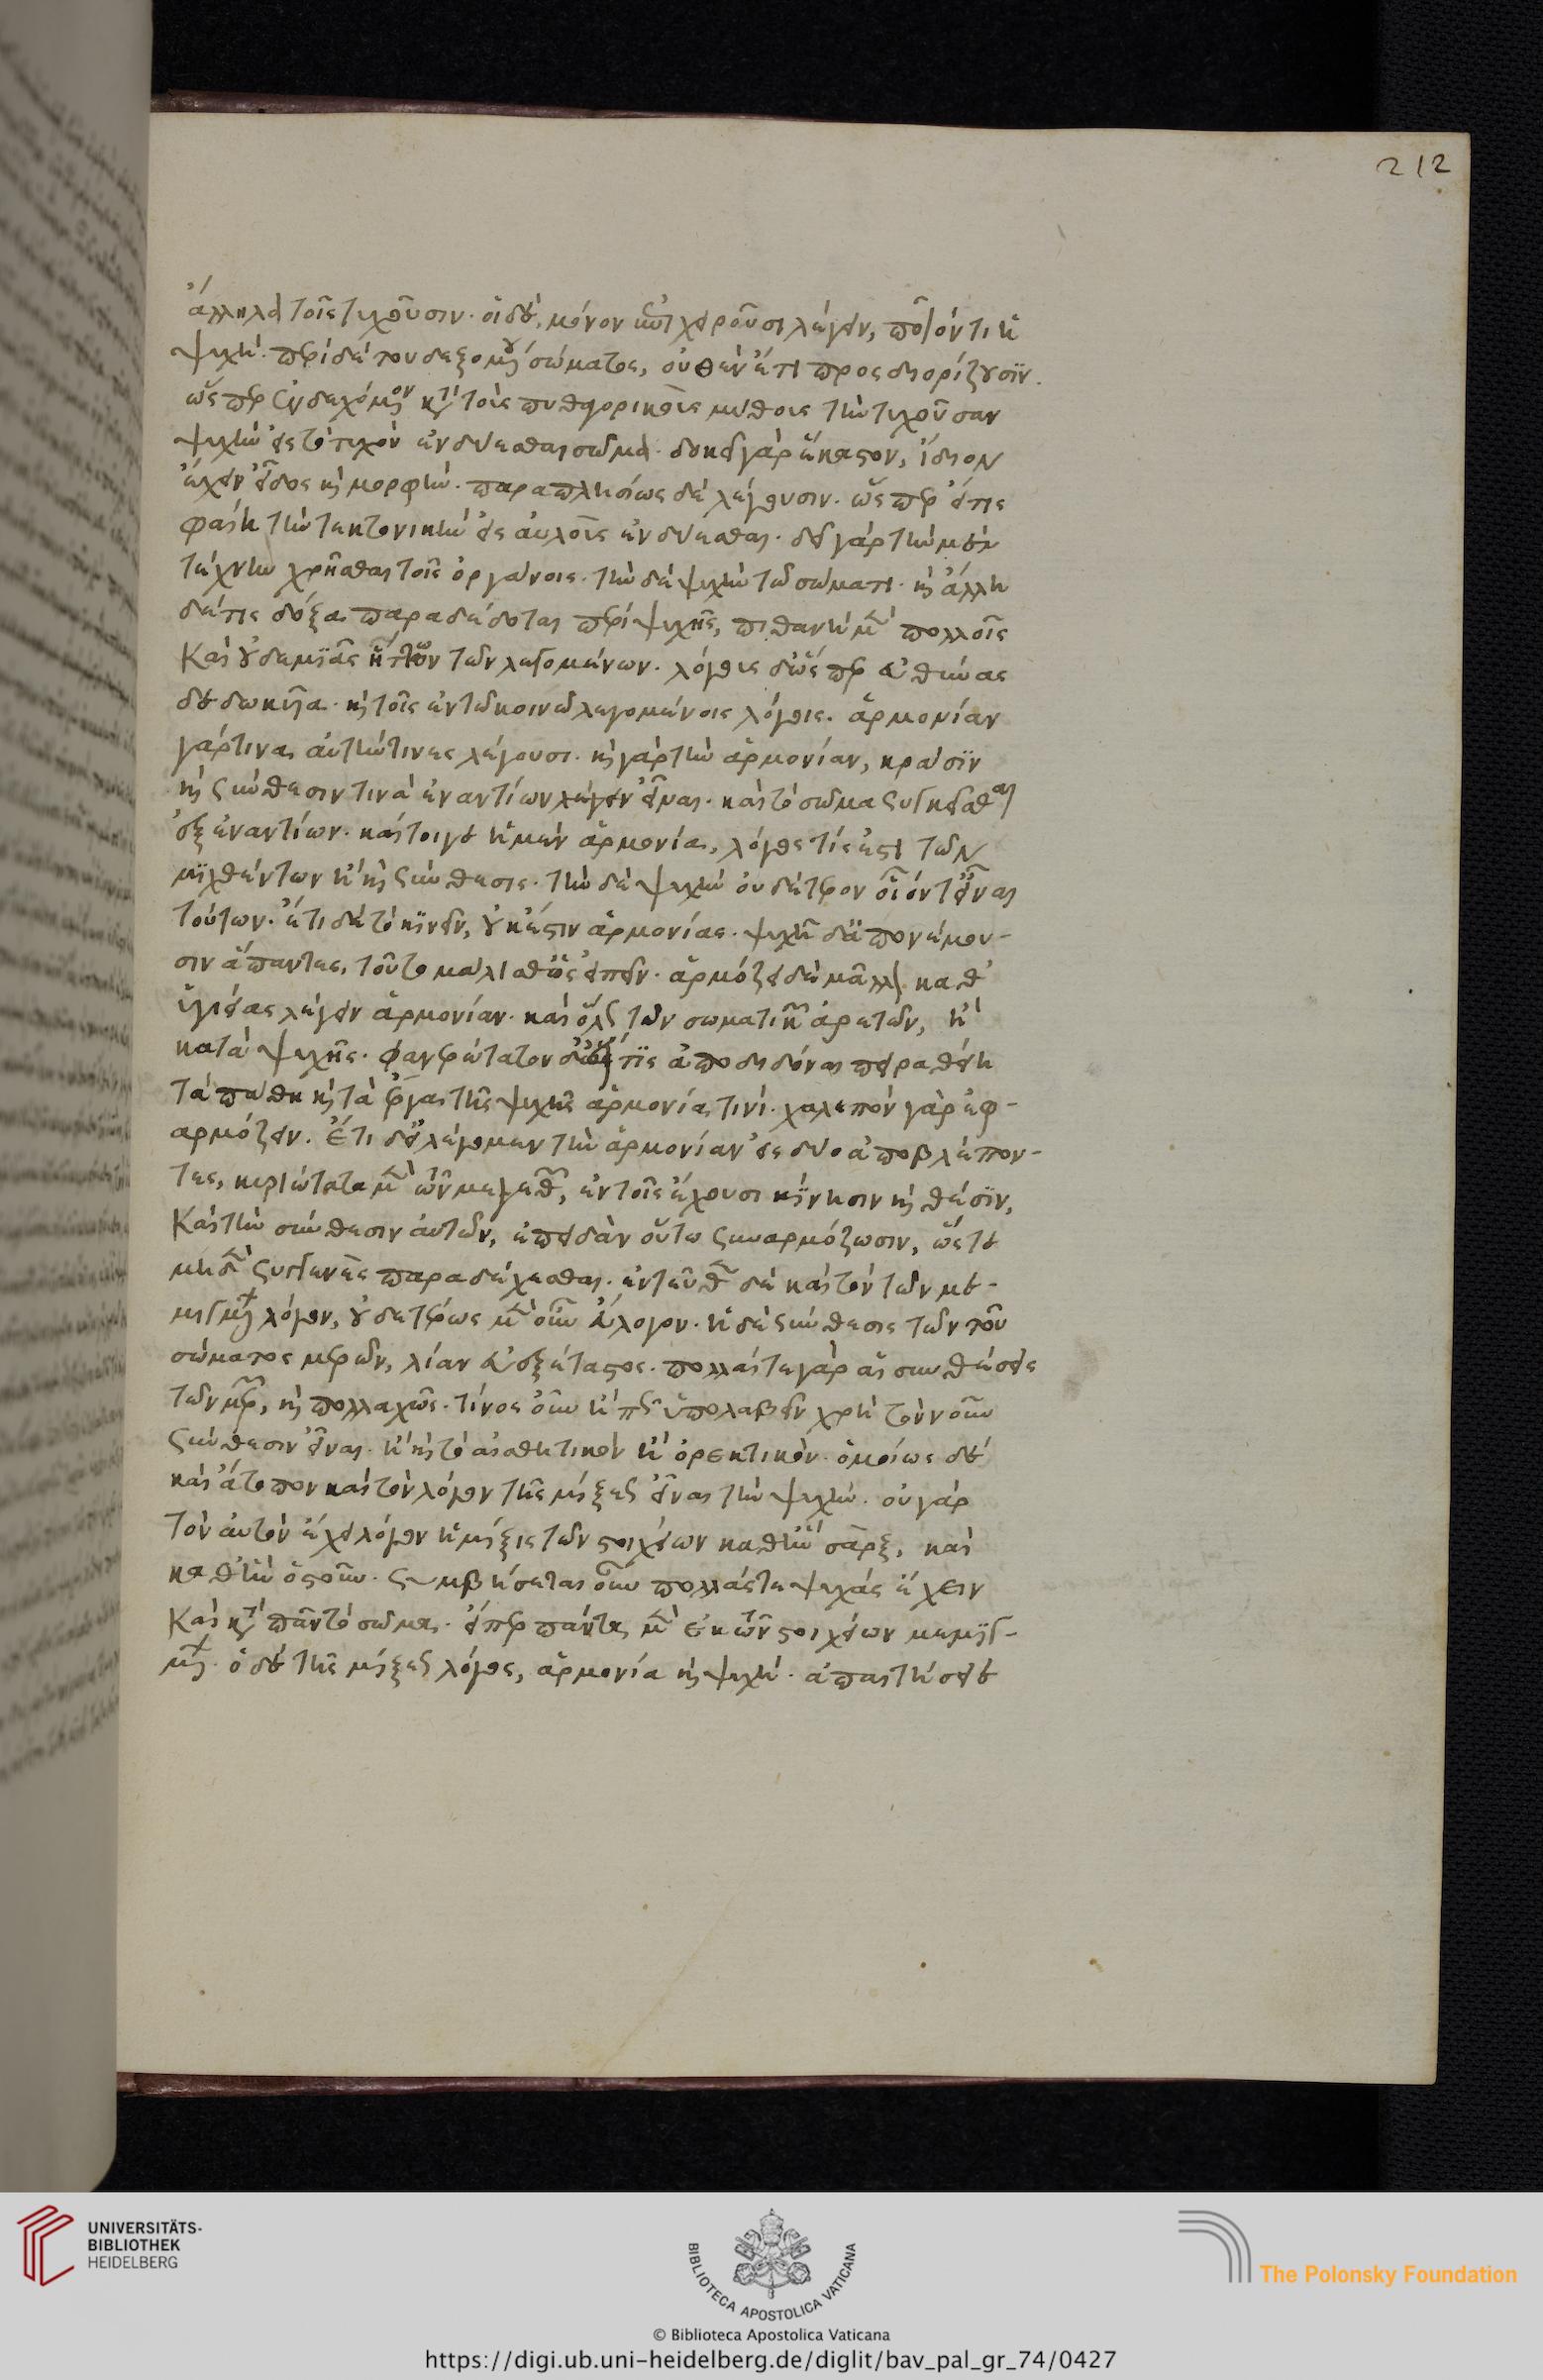 212
ἄλληλα τοῖς τυχοῦσιν. οἱ δὲ, μόνον ἐπιχειροῦσι λέγειν, ποῖόν τι ἡ
ψυχή. περὶ δὲ του δεξομένου σώματος, ουθὲν ἔτι προσδιορίζουσϊν.
ὥσπερ ἐνδεχόμενον κατὰ τοὺς πυθαγορικοὺς μύθους τὴν τυχοῦσαν
ψυχὴν εἰς τὸ τυχὸν ἐνδύεσθαι σῶμα. δοκεῖ γὰρ ἕκαστον, ἴδιον
ἔχειν εἶδος καὶ μορφήν. παραπλησίως δὲ λέγουσιν. ὥσπερ εἴ τις
φαίη τὴν τεκτονικὴν εἰς αὐλοὺς ἐνδύεσθαι. δεῖ γὰρ τὴν μὲν
τέχνην χρῆσθαι τοῖς ὀργάνοις. τὴν δὲ ψυχὴν τῶ σώματι. καὶ ἄλλη
δέ τις δόξα παραδέδοται περὶ ψυχῆς, πιθανὴ μὲν πολλοῖς
Καὶ οὐδεμιᾶς ἧττον τῶν λεγομένων. λόγους δ' ὥσπερ εὐθύνας
δεδωκυῖα. καὶ τοῖς ἐν τῶ κοινῶ λεγομένοις λόγοις. ἁρμονίαν
γάρ τινα αὐτήν τινες λέγουσι. καὶ γὰρ τὴν ἁρμονίαν, κράσϊν
καὶ σύνθεσιν τινὰ ἐναντίων λέγειν εἶναι. καὶ τὸ σῶμα συγκεῖσθαι
ἐξ ἐναντίων. καίτοιγε ἡ μὲν ἁρμονία, λόγος τίς ἐστι τῶν
μϊχθέντων ἢ καὶ σύνθεσις. τὴν δὲ ψυχὴν ουδέτερον οἷόν τ' εἶναι
τούτων. ἔτι δὲ τὸ κϊνεῖν, οὐκ ἔστιν ἁρμονίας. ψυχῆ δὲ ἀπονέμου-
σιν ἅπαντες, τοῦτο μάλισθ' ὡς εἰπεῖν. ἁρμόζει δὲ μᾶλλον καθ'
ὑγιείας λέγειν ἁρμονίαν. καὶ ὅλως τῶν σωματικῶν ἀρετῶν, ἢ
κατὰ ψυχῆς. φανερώτατον δ' εἴ τις ἀποδιδόναι πειραθείη
τὰ πάθη καὶ τὰ ἔργα τῆς ψυχῆς ἁρμονία τινὶ. χαλεπὸν γὰρ ἐφ-
αρμόζειν. ἔτι δ' εἰ λέγομεν τὴν ἁρμονίαν εἰς δύο ἀποβλέπον-
τες, κυριώτατα μὲν τῶν μεγεθῶν, ἐν τοῖς ἔχουσι κϊνησιν καὶ θέσϊν,
Καὶ τὴν σύνθεσιν αὐτῶν, ἐπειδὰν οὕτω συναρμόζωσιν, ὥστε
μηδὲν συγγενὲς παραδέχεσθαι. ἐντεῦθεν δὲ καὶ τὸν τῶν με-
μιγμένων λόγον, οὐδετέρως μὲν οὖν εὔλογον. ἡ δὲ σύνθεσις τῶν τοῦ
σώματος μερῶν, λίαν εὐεξέταστος. πολλαί τε γὰρ αἱ συνθέσεις
τῶν μερῶν, καὶ πολλαχῶς. τίνος οὖν ἢ πῶς ὑπολαβεῖν χρὴ τὸν νοῦν
σύνθεσιν εἶναι. ἢ καὶ τὸ αἰσθητικὸν ἢ ὀρεκτικὸν. ὁμοίως δὲ
καὶ ἄτοπον καὶ τὸν λόγον τῆς μίξεως εἶναι τὴν ψυχήν. οὐ γὰρ
τὸν αὐτὸν ἔχει λόγον ἡ μίξις τῶν στοιχείων καθ' ἣν σὰρξ, καὶ
καθ' ἣν ὀστοῦν. συμβήσεται οὖν πολλάς τε ψυχὰς ἔχειν
Καὶ κατὰ πᾶν τὸ σῶμα. εἴπερ πάντα μὲν ἐκ τῶν στοιχείων μεμϊγ-
μένων. ὁ δὲ τῆς μίξεως λόγος, ἁρμονία καὶ ψυχή. ἀπαιτήσειε
UNIVERSITÄTS-
BIBLIOTHEK
HEIDELBERG
BIBLIOTECA APOSTOLICA VATICANA
The Polonsky Foundation
© Biblioteca Apostolica Vaticana
https://digi.ub.uni-heidelberg.de/diglit/bav_pal_gr_74/0427